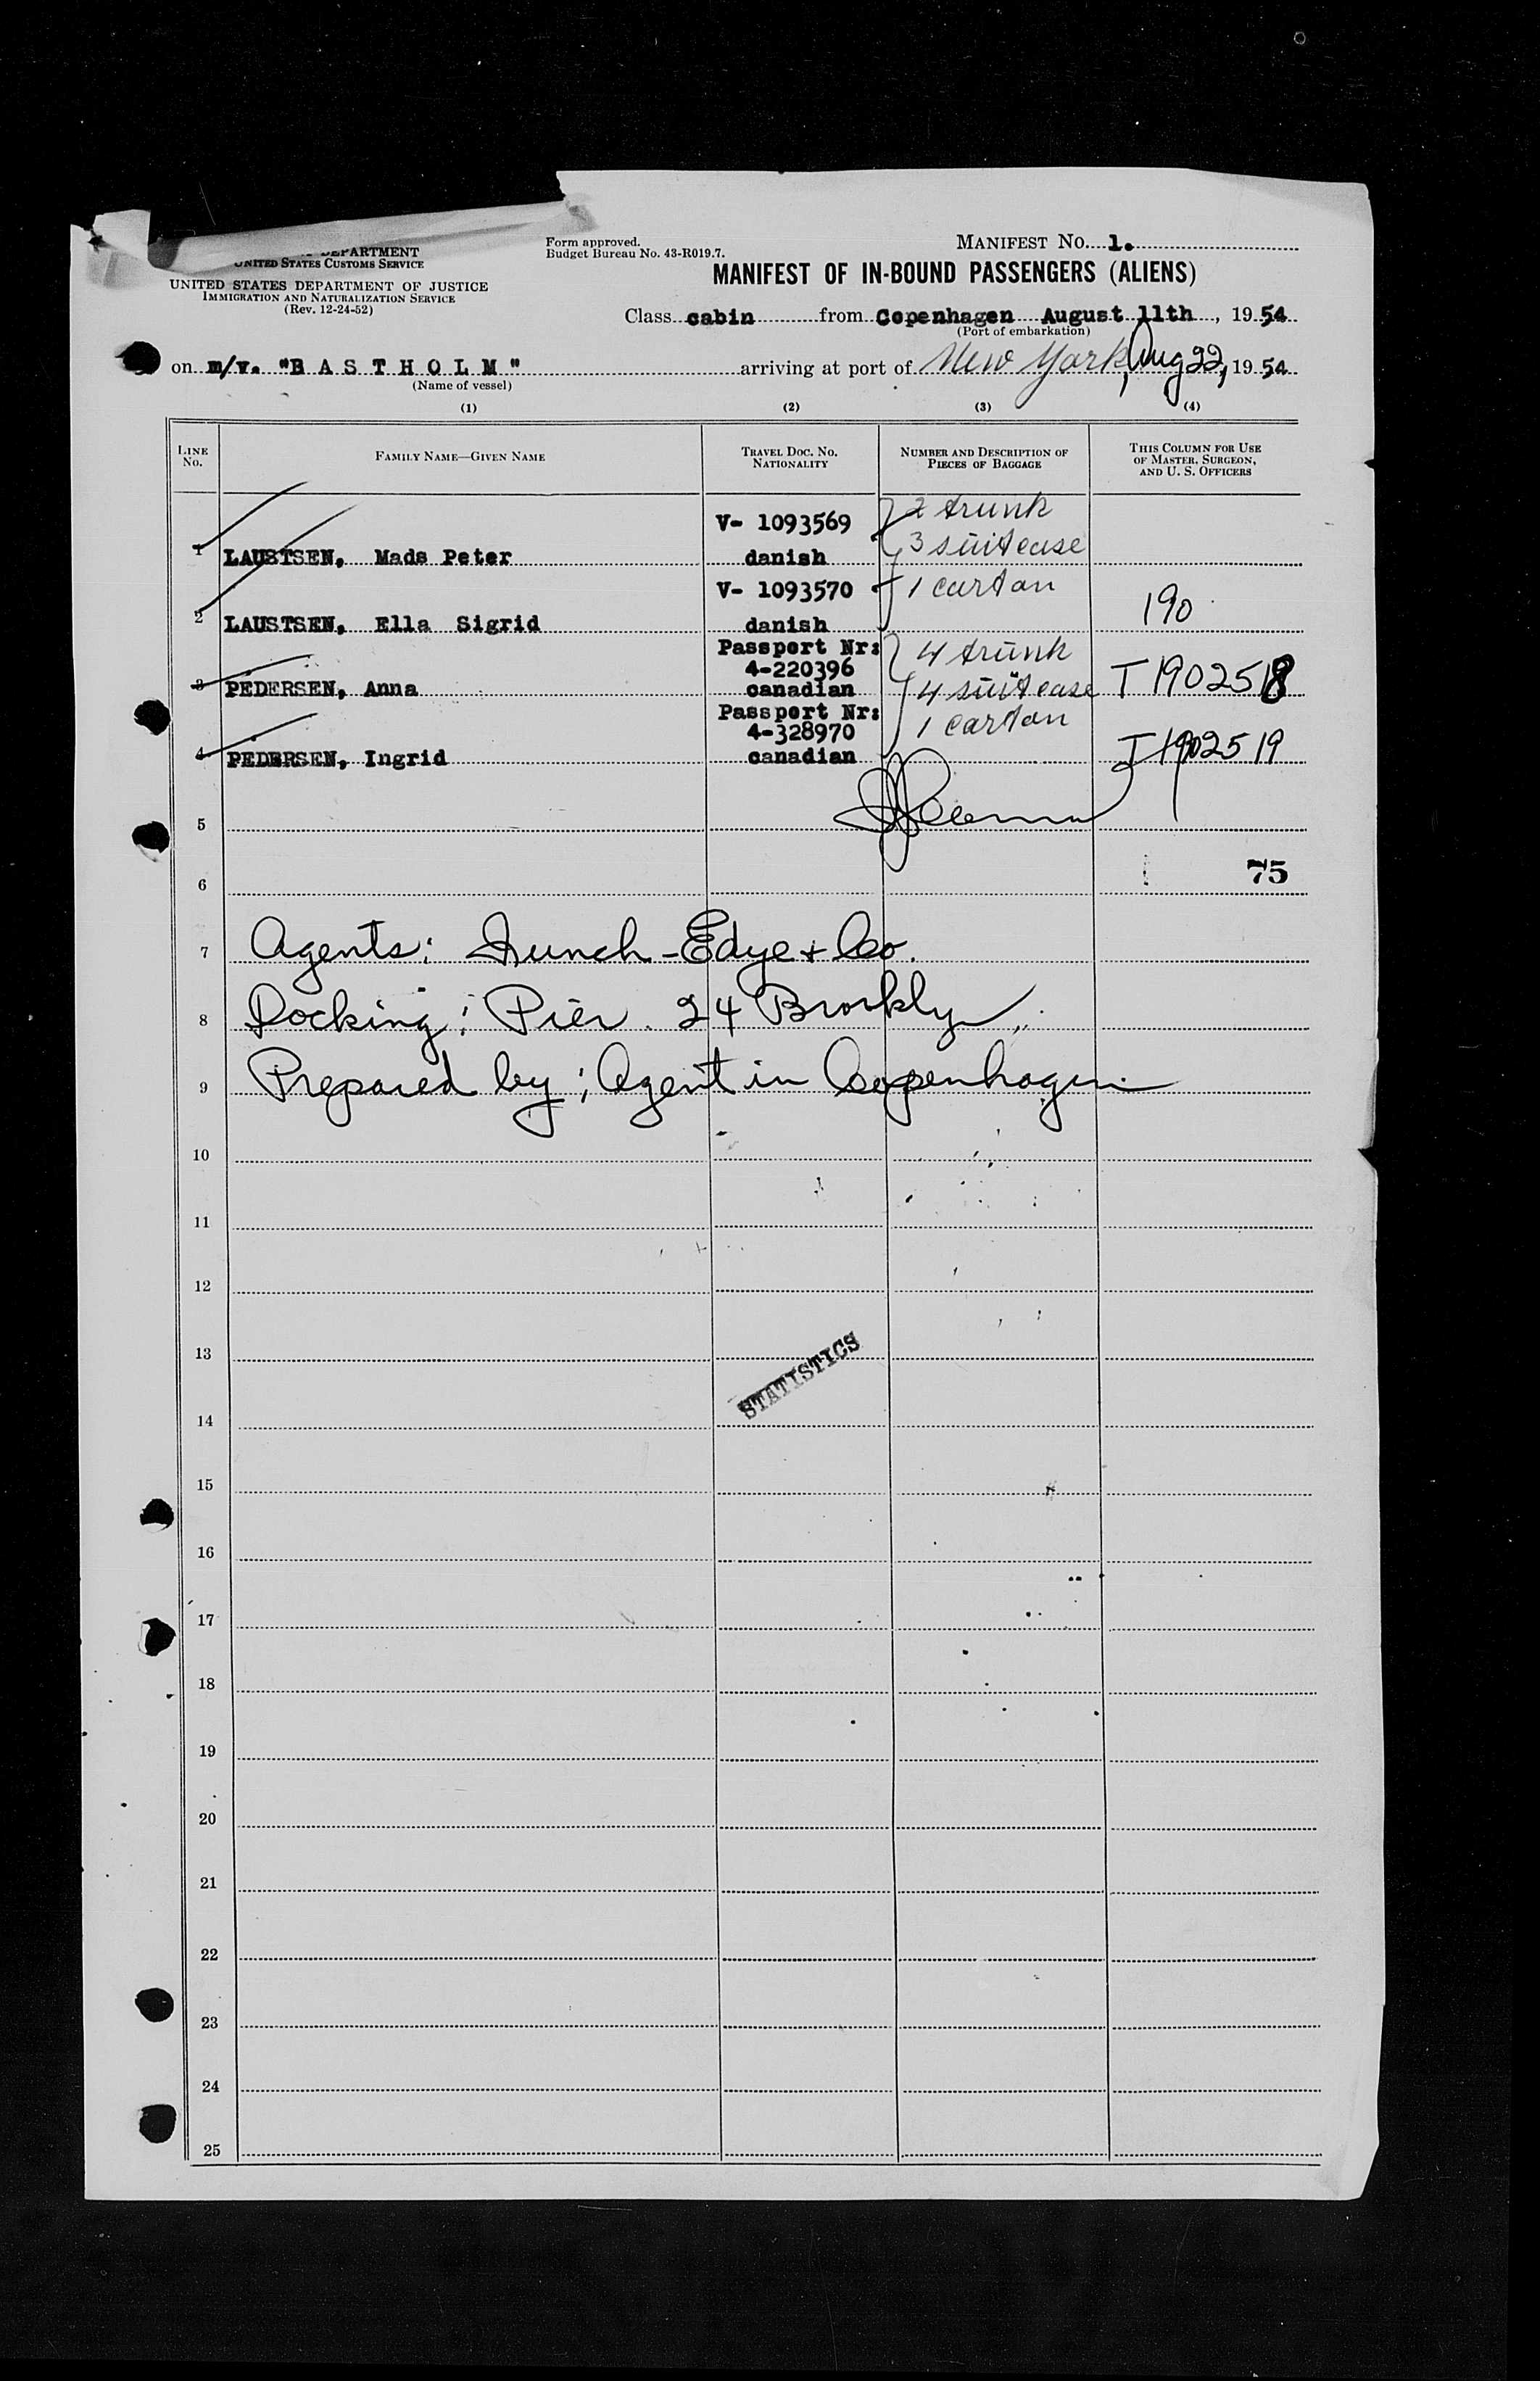 DEPARTMENT
UNITED STATES CUSTOMS SERVICE
UNITED STATES DEPARTMENT OF JUSTICE
IMMIGRATION AND NATURALIZATION SERVICE
(Rev. 12-24-52)
Form approved.
Budget Bureau No. 43-R019.7.
MANIFEST NO. 1.
MANIFEST OF IN-BOUND PASSENGERS (ALIENS)
Class cabin from Copenhagen August 11th, 1954
(Port of embarkation)
on m/v. "B A S T H O L M" arriving at port of New York, Aug 22, 1954
(Name of vessel)
(1) (2) (3) (4)
LINE NO.
FAMILY NAME—GIVEN NAME
TRAVEL DOC. NO. NATIONALITY
NUMBER AND DESCRIPTION OF PIECES OF BAGGAGE
THIS COLUMN FOR USE OF MASTER, SURGEON, AND U. S. OFFICERS
V- 1093569 2 trunk
1 LAUSTSEN, Mads Peter danish 3 suitcase
V- 1093570 1 carton
2 LAUSTSEN, Ella Sigrid danish 190
Passport Nr: 4 trunk
4-220396
3 PEDERSEN, Anna canadian 4 suitcase T 1902518
Passport Nr: 1 carton
4-328970
4 PEDERSEN, Ingrid canadian T 1902519
5
6 75
7 Agents: Funch-Edye + Co.
8 Docking: Pier. 24 Brooklyn
9 Prepared by; Agent in Copenhagen
10
11
12
13
STATISTICS
14
15
16
17
18
19
20
21
22
23
24
25